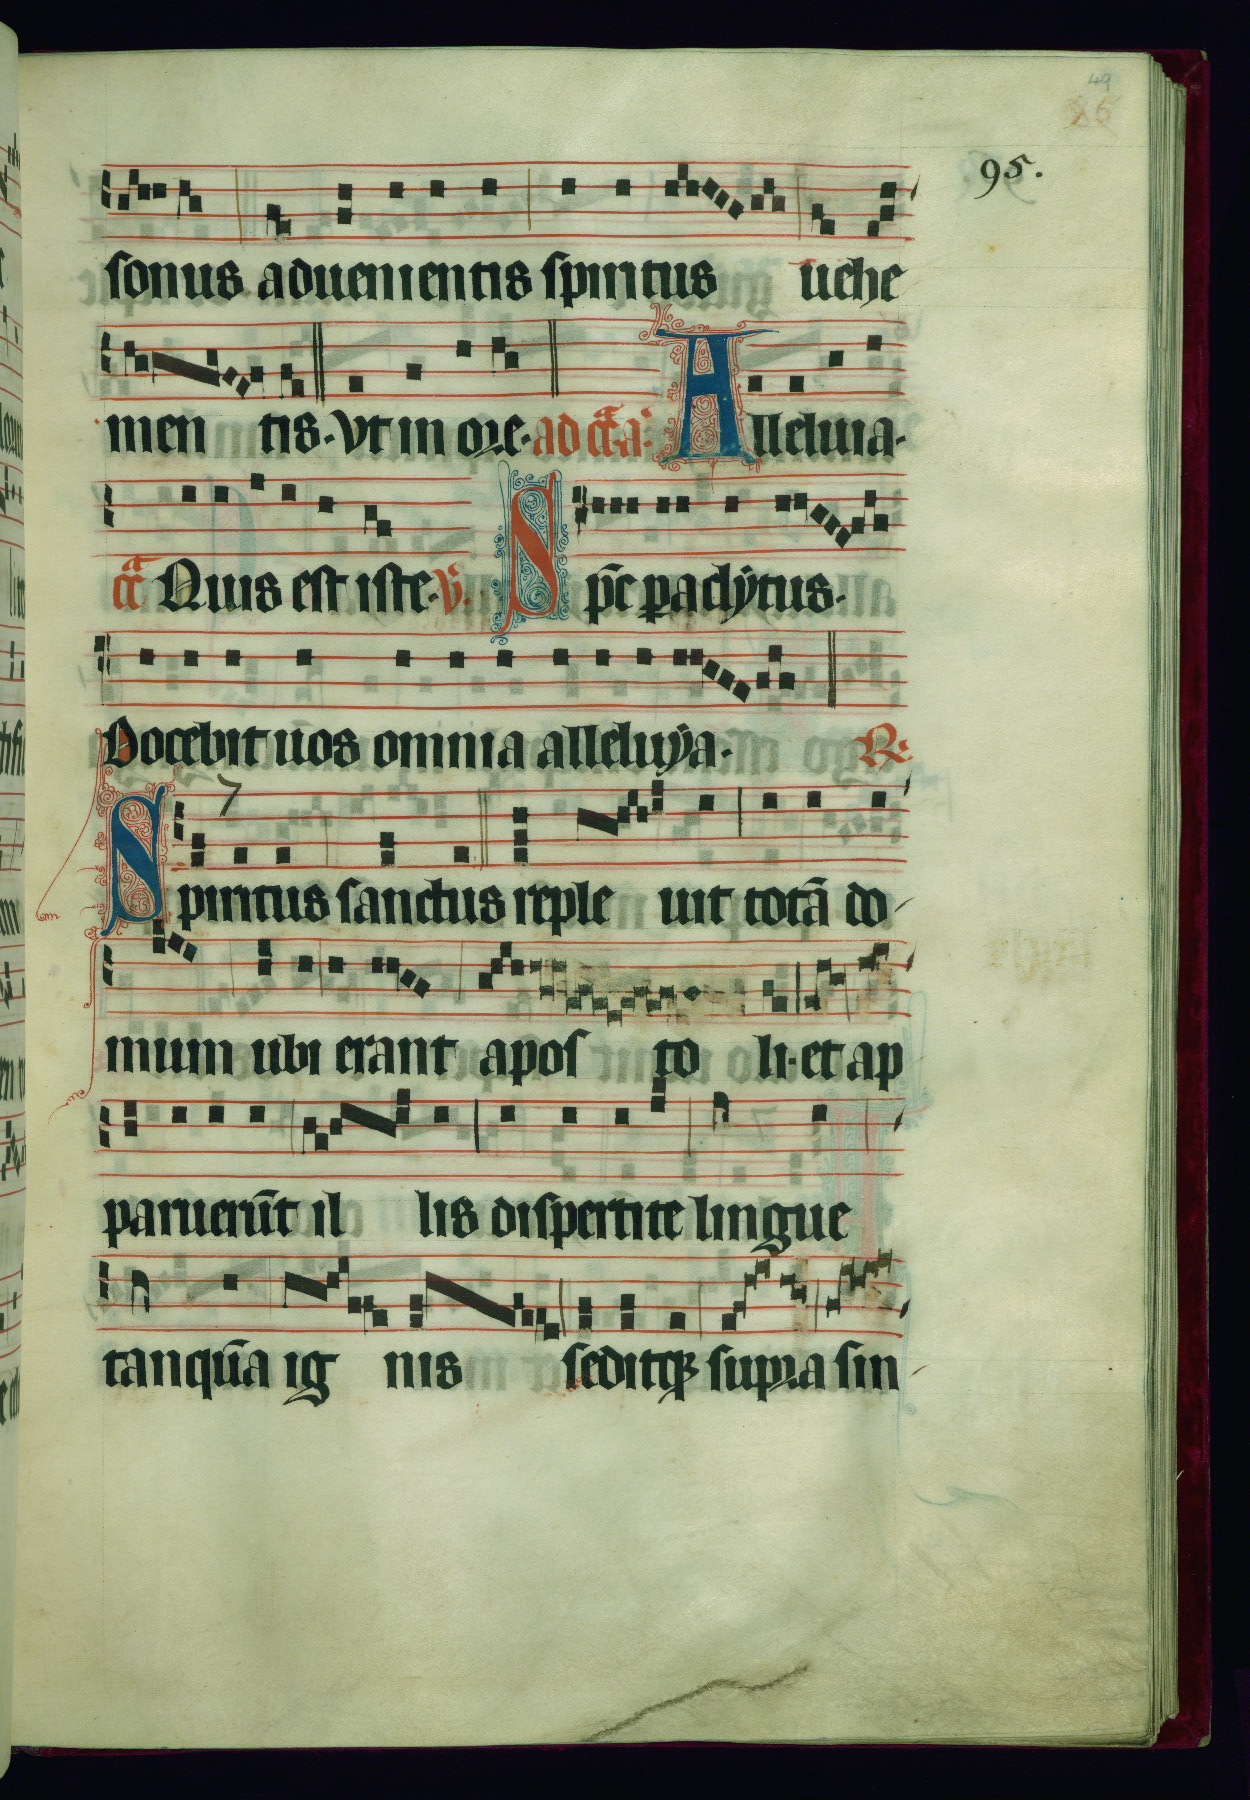 49
95.
sonus aduenientis spiritus uehe
men tis. Vt in ore. ad cc̄a. Alleluia.
cc̄a Quis est iste. V̄. Sp̄c paclẏtus.
Docebit uos omnia alleluẏa. R.
Spiritus sanctus reple uit totā do
mum ubi erant apos to li. et ap
paruerūt il lis dispertite lingue
tanquā ig nis seditqꝫ supra sin